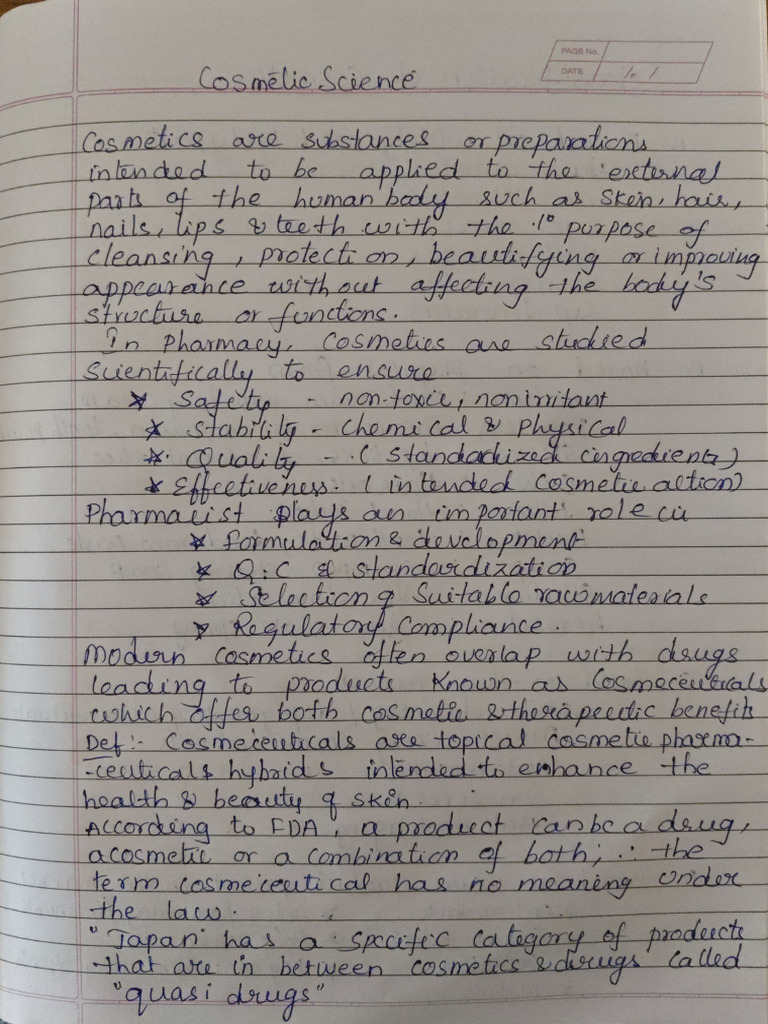 PAGE No.
DATE / /
Cosmetic Science
Cosmetics are substances or preparations
intended to be applied to the external
parts of the human body such as skin, hair,
nails, lips & teeth with the 1° purpose of
cleansing, protection, beautifying or improving
appearance without affecting the body's
structure or functions.
In Pharmacy, cosmetics are studied
scientifically to ensure
* Safety - non-toxic, nonirritant
* Stability - chemical & physical
* Quality - (standardized ingredients)
* Effectiveness. (intended cosmetic action)
Pharmacist plays an important role in
* formulation & development
* Q.C & standardization
* Selection of suitable raw materials
* Regulatory compliance.
Modern cosmetics often overlap with drugs
leading to products known as Cosmeceuticals
which offer both cosmetic & therapeutic benefits
Def:- Cosmeceuticals are topical cosmetic pharma-
-ceuticals hybrids intended to enhance the
health & beauty of skin.
According to FDA, a product can be a drug,
a cosmetic or a combination of both; ∴ the
term cosmeceutical has no meaning under
the law.
"Japan has a specific category of products
that are in between cosmetics & drugs called
"quasi drugs"